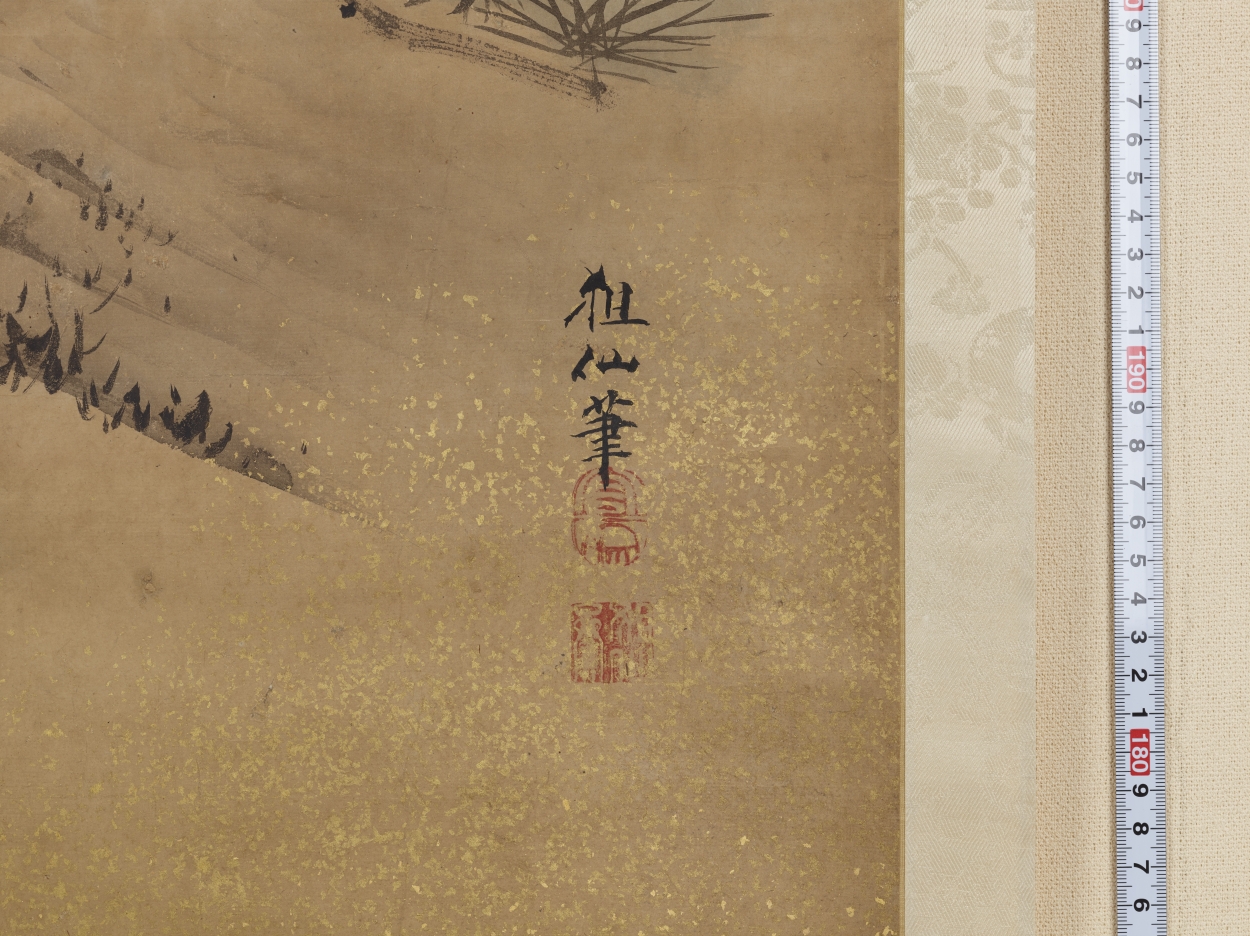 狙仙筆
9
8
7
6
5
4
3
2
1
190
9
8
7
6
5
4
3
2
1
180
9
8
7
6